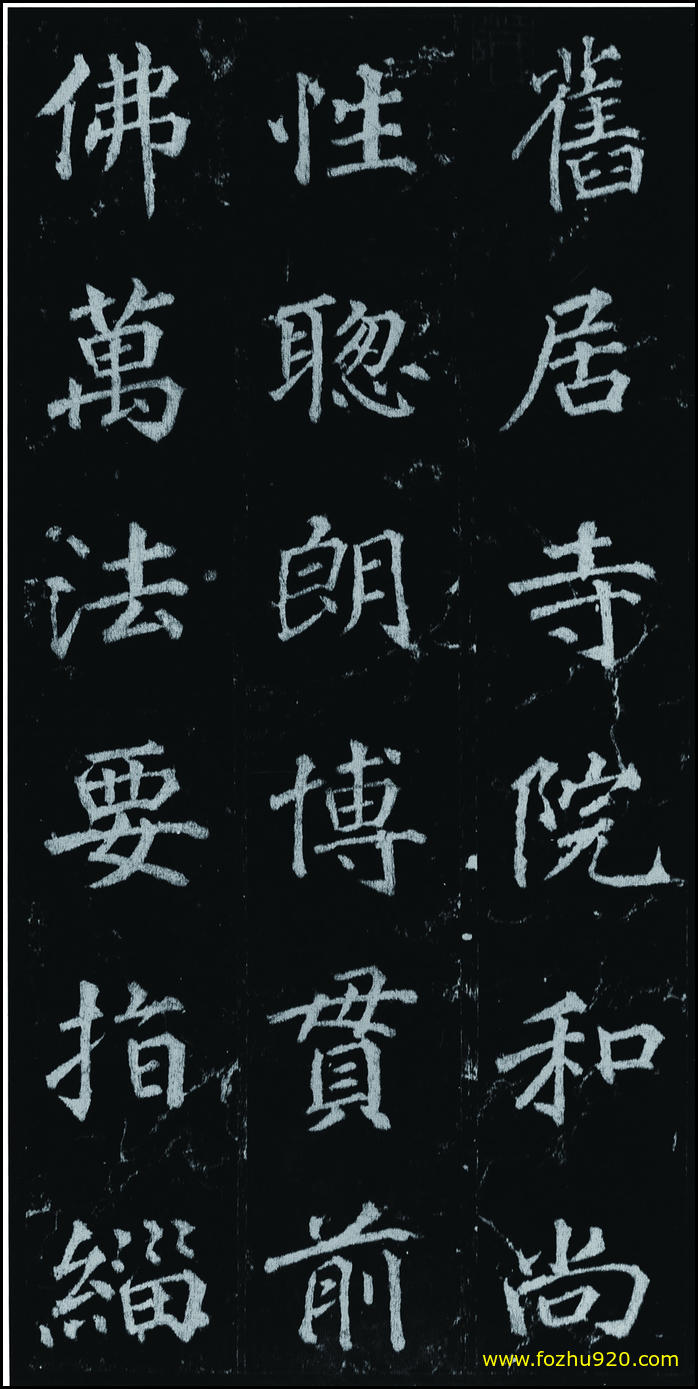 舊居寺院和尚
性聰朗博貫前
佛萬法要指緇
www.fozhu920.com